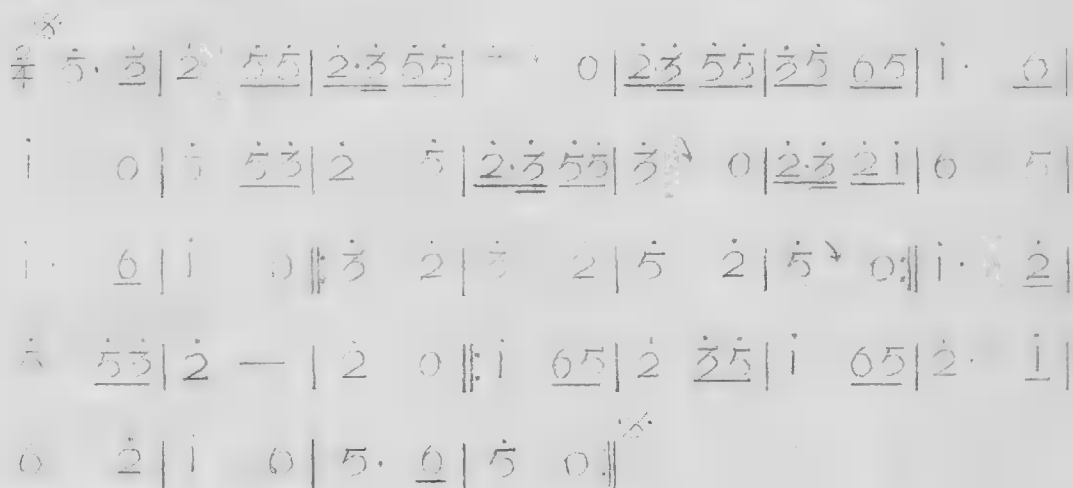 2/4 5̇· 3̇ | 2̇ 5̇5̇ | 2̇·3̇ 5̇5̇ | 0 | 2̇·3̇ 5̇5̇ | 3̇5̇ 65 | 1̇· 6 |
1̇ 0 | 5̇ 5̇3̇ | 2̇ 5̇ | 2̇·3̇ 5̇5̇ | 3̇↘ 0 | 2̇·3̇ 2̇1̇ | 6 5 |
1̇· 6 | 1̇ 0 ‖: 3̇ 2̇ | 3̇ 2̇ | 5̇ 2̇ | 5̇↘ 0 :‖ 1̇· 2̇ |
5̇3̇ | 2̇ — | 2̇ 0 ‖: 1̇ 65 | 2̇ 3̇5̇ | 1̇ 65 | 2̇· 1̇ |
6 2̇ | 1̇ 6 | 5· 6 | 5̇ 0 :‖